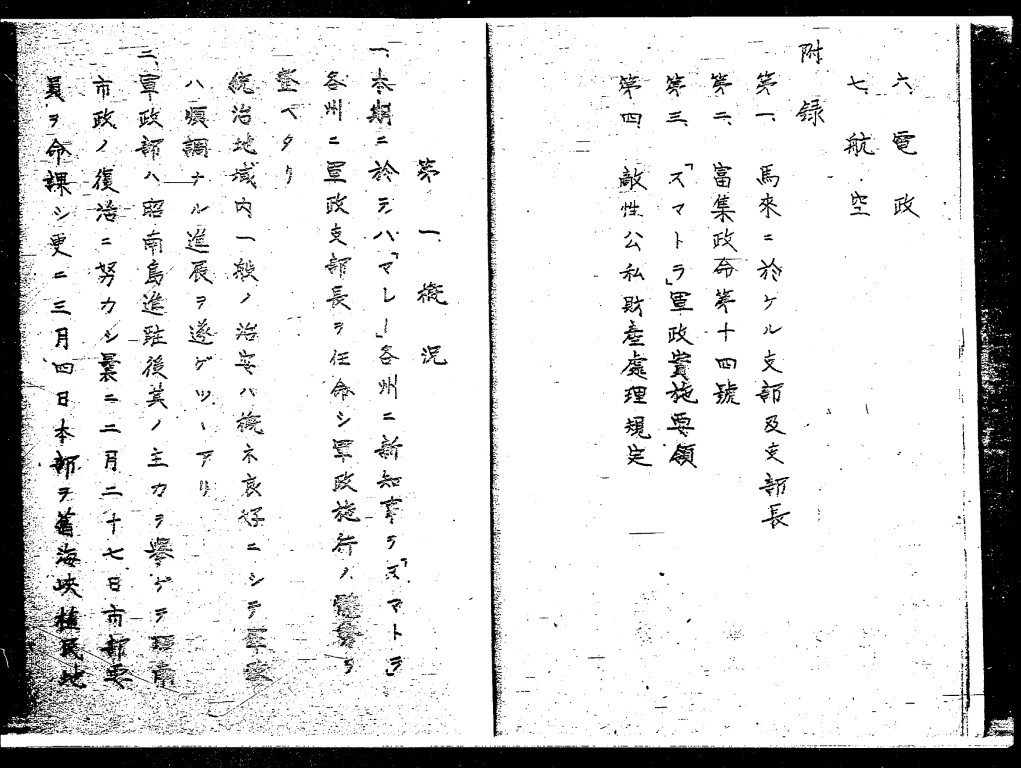 六、電政
七、航空
附録
第一、馬來ニ於ケル支部及支部長
第二、富集政命第十四號
第三、「スマトラ」軍政實施要領
第四、敵性公私財產處理規定
第一、概況
一、本期ニ於テハ「マレー」各州ニ新知事ヲ「スマトラ」
各州ニ軍政支部長ヲ任命シ軍政施行ノ態勢ヲ
整ヘタリ
統治地域內一般ノ治安ハ概ネ良好ニシテ軍政
ハ順調ナル進展ヲ遂ゲツヽアリ
二、軍政部ハ昭南島進駐後其ノ主力ヲ擧ゲテ昭南
市政ノ復活ニ努力シ曩ニ二月二十七日市部要
員ヲ命課シ更ニ三月四日本部ヲ舊海峽植民地